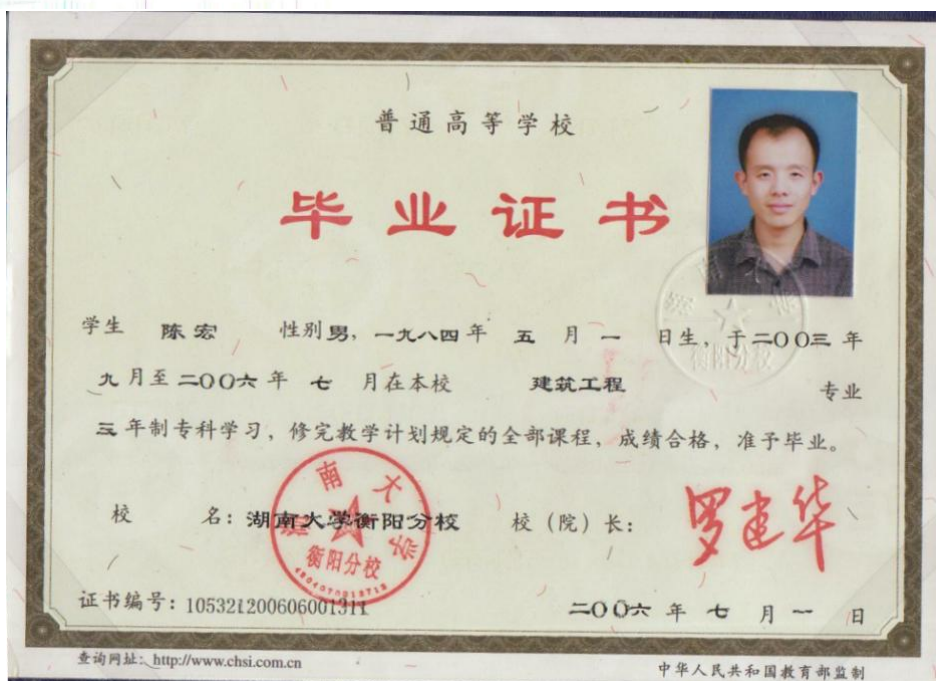 普通高等学校
毕业证书
学生 陈宏 性别 男，一九八四年 五 月 一 日生，于二〇〇三年
九月至二〇〇六年 七 月在本校 建筑工程 专业
三年制专科学习，修完教学计划规定的全部课程，成绩合格，准予毕业。
校 名：湖南大学衡阳分校 校（院）长：罗建华
湖南大学
衡阳分校
证书编号：105321200606001311 二〇〇六年 七 月 一 日
查询网址：http://www.chsi.com.cn 中华人民共和国教育部监制